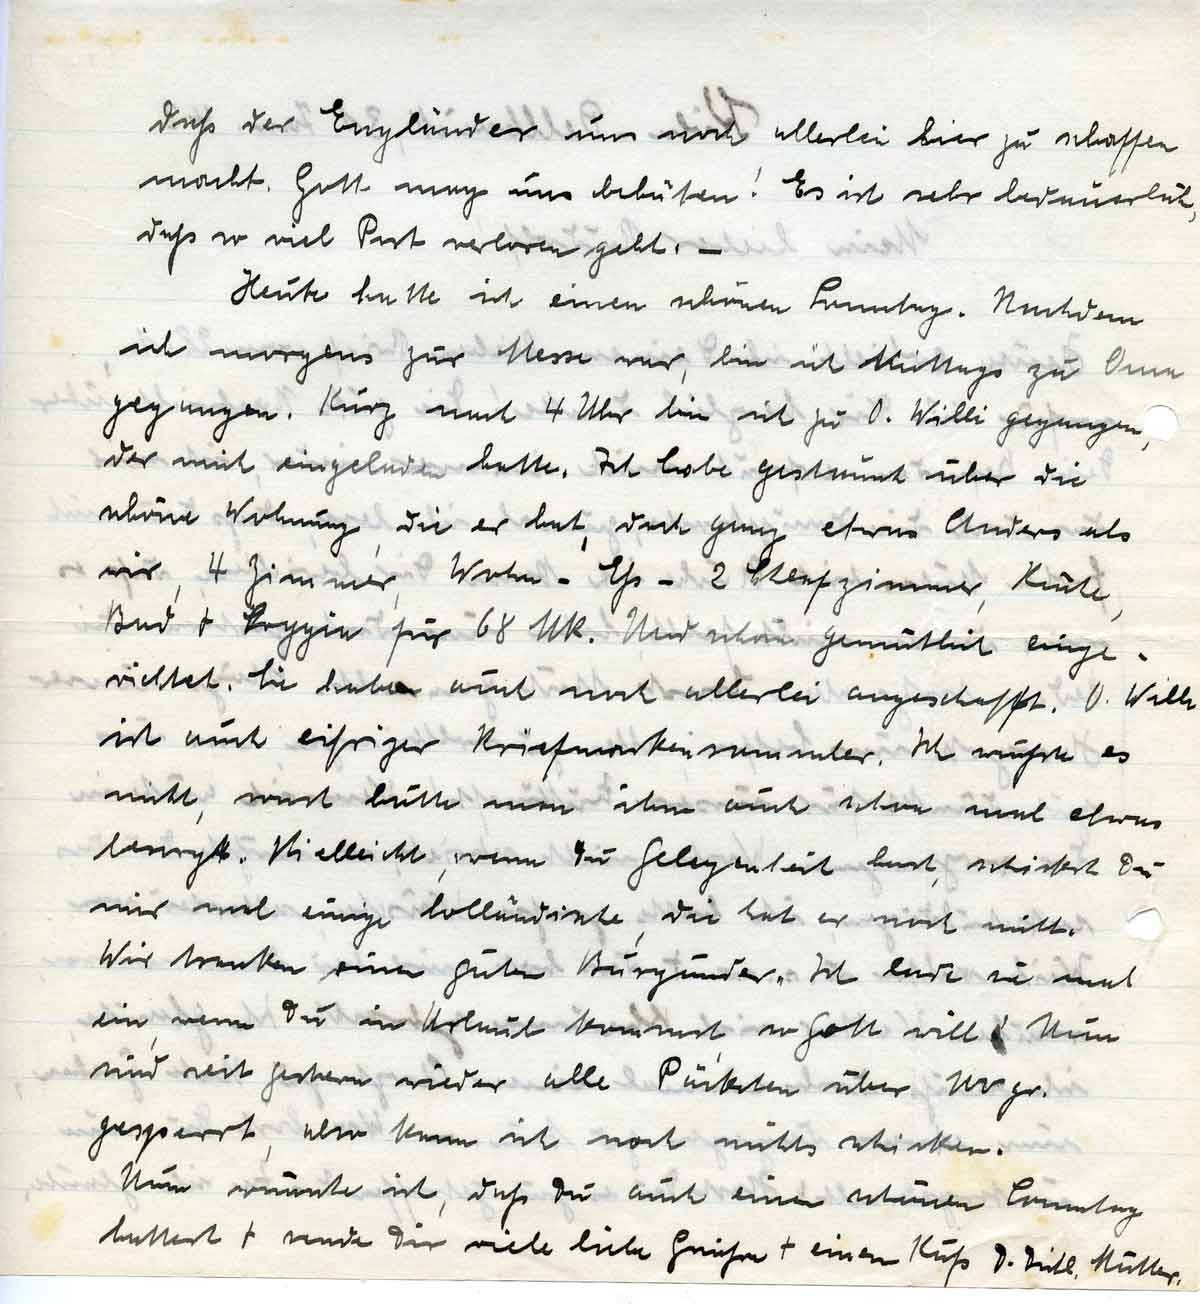 daß der Engländer uns noch allerlei hier zu schaffen
macht. Gott mag uns behüten! Es ist sehr bedauerlich,
daß so viel Post verloren geht. –
Heute hatte ich einen schönen Sonntag. Nachdem
ich morgens zur Messe war, bin ich Mittags zu Oma
gegangen. Kurz nach 4 Uhr bin ich zu O. Willi gegangen,
der mich eingeladen hatte. Ich habe gestaunt über die
schöne Wohnung, die er hat, doch ganz etwas Anders als
wir, 4 Zimmer, Wohn- Eß- 2 Schlafzimmer, Küche,
Bad + Loggia für 68 MK. Und schön gemütlich einge-
richtet. Sie haben auch noch allerlei angeschafft. O. Willi
ist auch eifriger Briefmarkensammler. Ich wußte es
nicht, sonst hätte man ihm auch schon mal etwas
besorgt. Vielleicht, wenn Du Gelegenheit hast, schickst Du
mir mal einige holländische, die hat er noch nicht.
Wir tranken einen guten Burgunder. Ich lade sie mal
ein, wenn Du in Urlaub kommst, so Gott will! Nun
sind seit gestern wieder alle Päckchen über gr.
gesperrt, also kann ich noch nichts schicken.
Nun wünsche ich, daß Du auch einen schönen Sonntag
hattest + sende Dir viele liebe Grüße + einen Kuß D. Mutter.